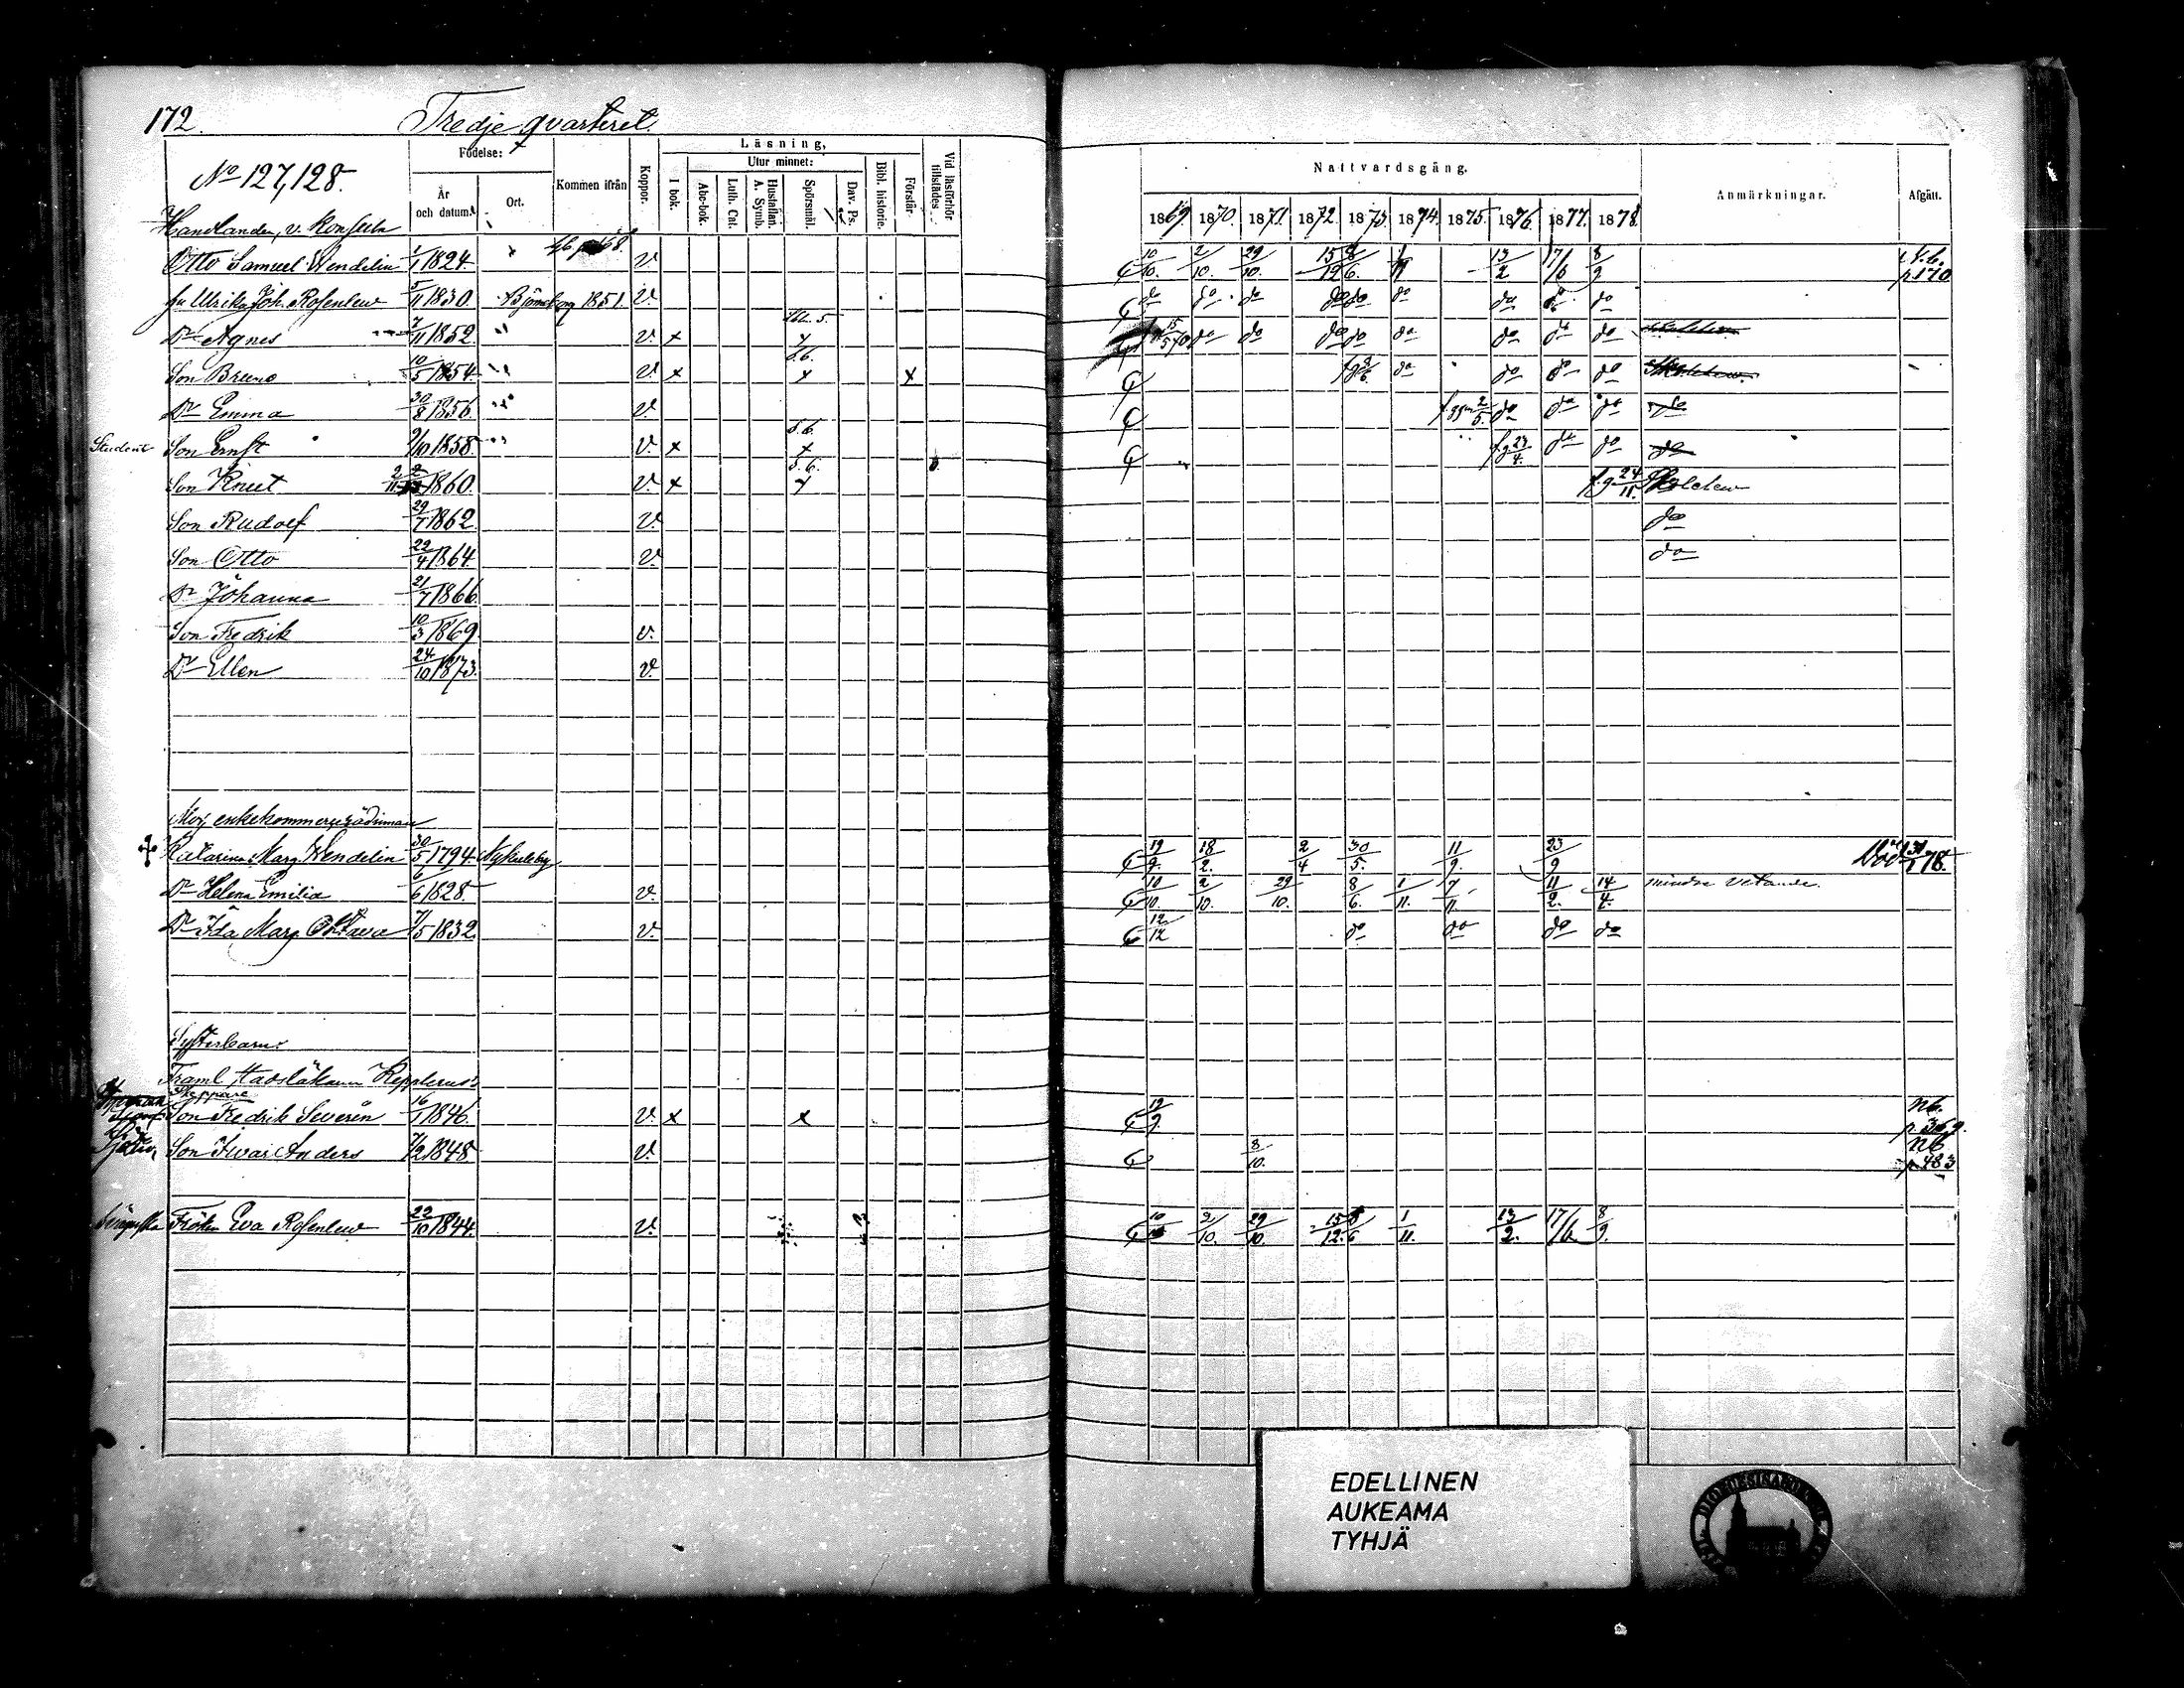 172. Tredje qvarteret.
No 127,128.
Födelse:
År och datum.
Ort.
Kommen ifrån
Koppor.
Läsning,
I bok.
Utur minnet:
Abc-bok.
Luth. Cat.
Hustaflan. A. Symb.
Spörsmål.
Dav. Ps.
Bibl. historie.
Förstår.
Vid läsförhör tillstädes.
Nattvardsgång.
1869. 1870. 1871. 1872. 1873. 1874. 1875. 1876. 1877. 1878.
Anmärkningar.
Afgått.
Handlanden, v. Konsuln
Otto Samuel Wendelin 1/1 1824. v. 10/10. 2/10. 29/10. 15/12 8/6. 13/2 17/6 8/9 p 170
fru Ulrika Joh. Rosenlew 5/11 1830. Björneborg 1851. v. do do do do do do do do do
Dr Agnes 7/11 1852. v. x do do do do do do do do
Son Bruno 10/5 1854. v. x x x do do do do
Dr Emma 30/8 1856. v. 2/5. do do do do
Student Son Ernst 9/10 1858. v. x s.b. x 23/4. do do do
Son Knut 2/11 1860. v. x s.b. f.g. 24/11.
Son Rudolf 29/7 1862. v. do
Son Otto 22/4 1864. v. do
Dr Johanna 21/7 1866.
Son Fredrik 10/3 1869. v.
Dr Ellen 24/10 1873. v.
Mor, enkekommerserådinnan
Katarina Marg. Wendelin 30/5 1794 Nykarleby 19/9. 18/2. 2/4 30/5. 11/9. 23/9 Död 78.
Dr Helena Emilia 6/6 1828. v. 10/10. 2/10. 29/10. 8/6. 1/11. 7/11. 11/2. 14/4. mindre vetande.
Dr Ida Marg. Oktava 7/5 1832. v. 12/12 do do do do
Systerbarn:
Framl. stadsläkaren Kepplerus:
Skeppare
Son Fredrik Severin 16/1 1846. v. x x 19/9. nb. p. 369.
Son Ivar Anders 7/2 1848. v. 8/10. nb p 483
Fröken Eva Rosenlew 22/10 1844. v. 2/10. 29/10. 15/12. 8/6 1/11. 13/2. 17/6 8/9.
EDELLINEN
AUKEAMA
TYHJÄ